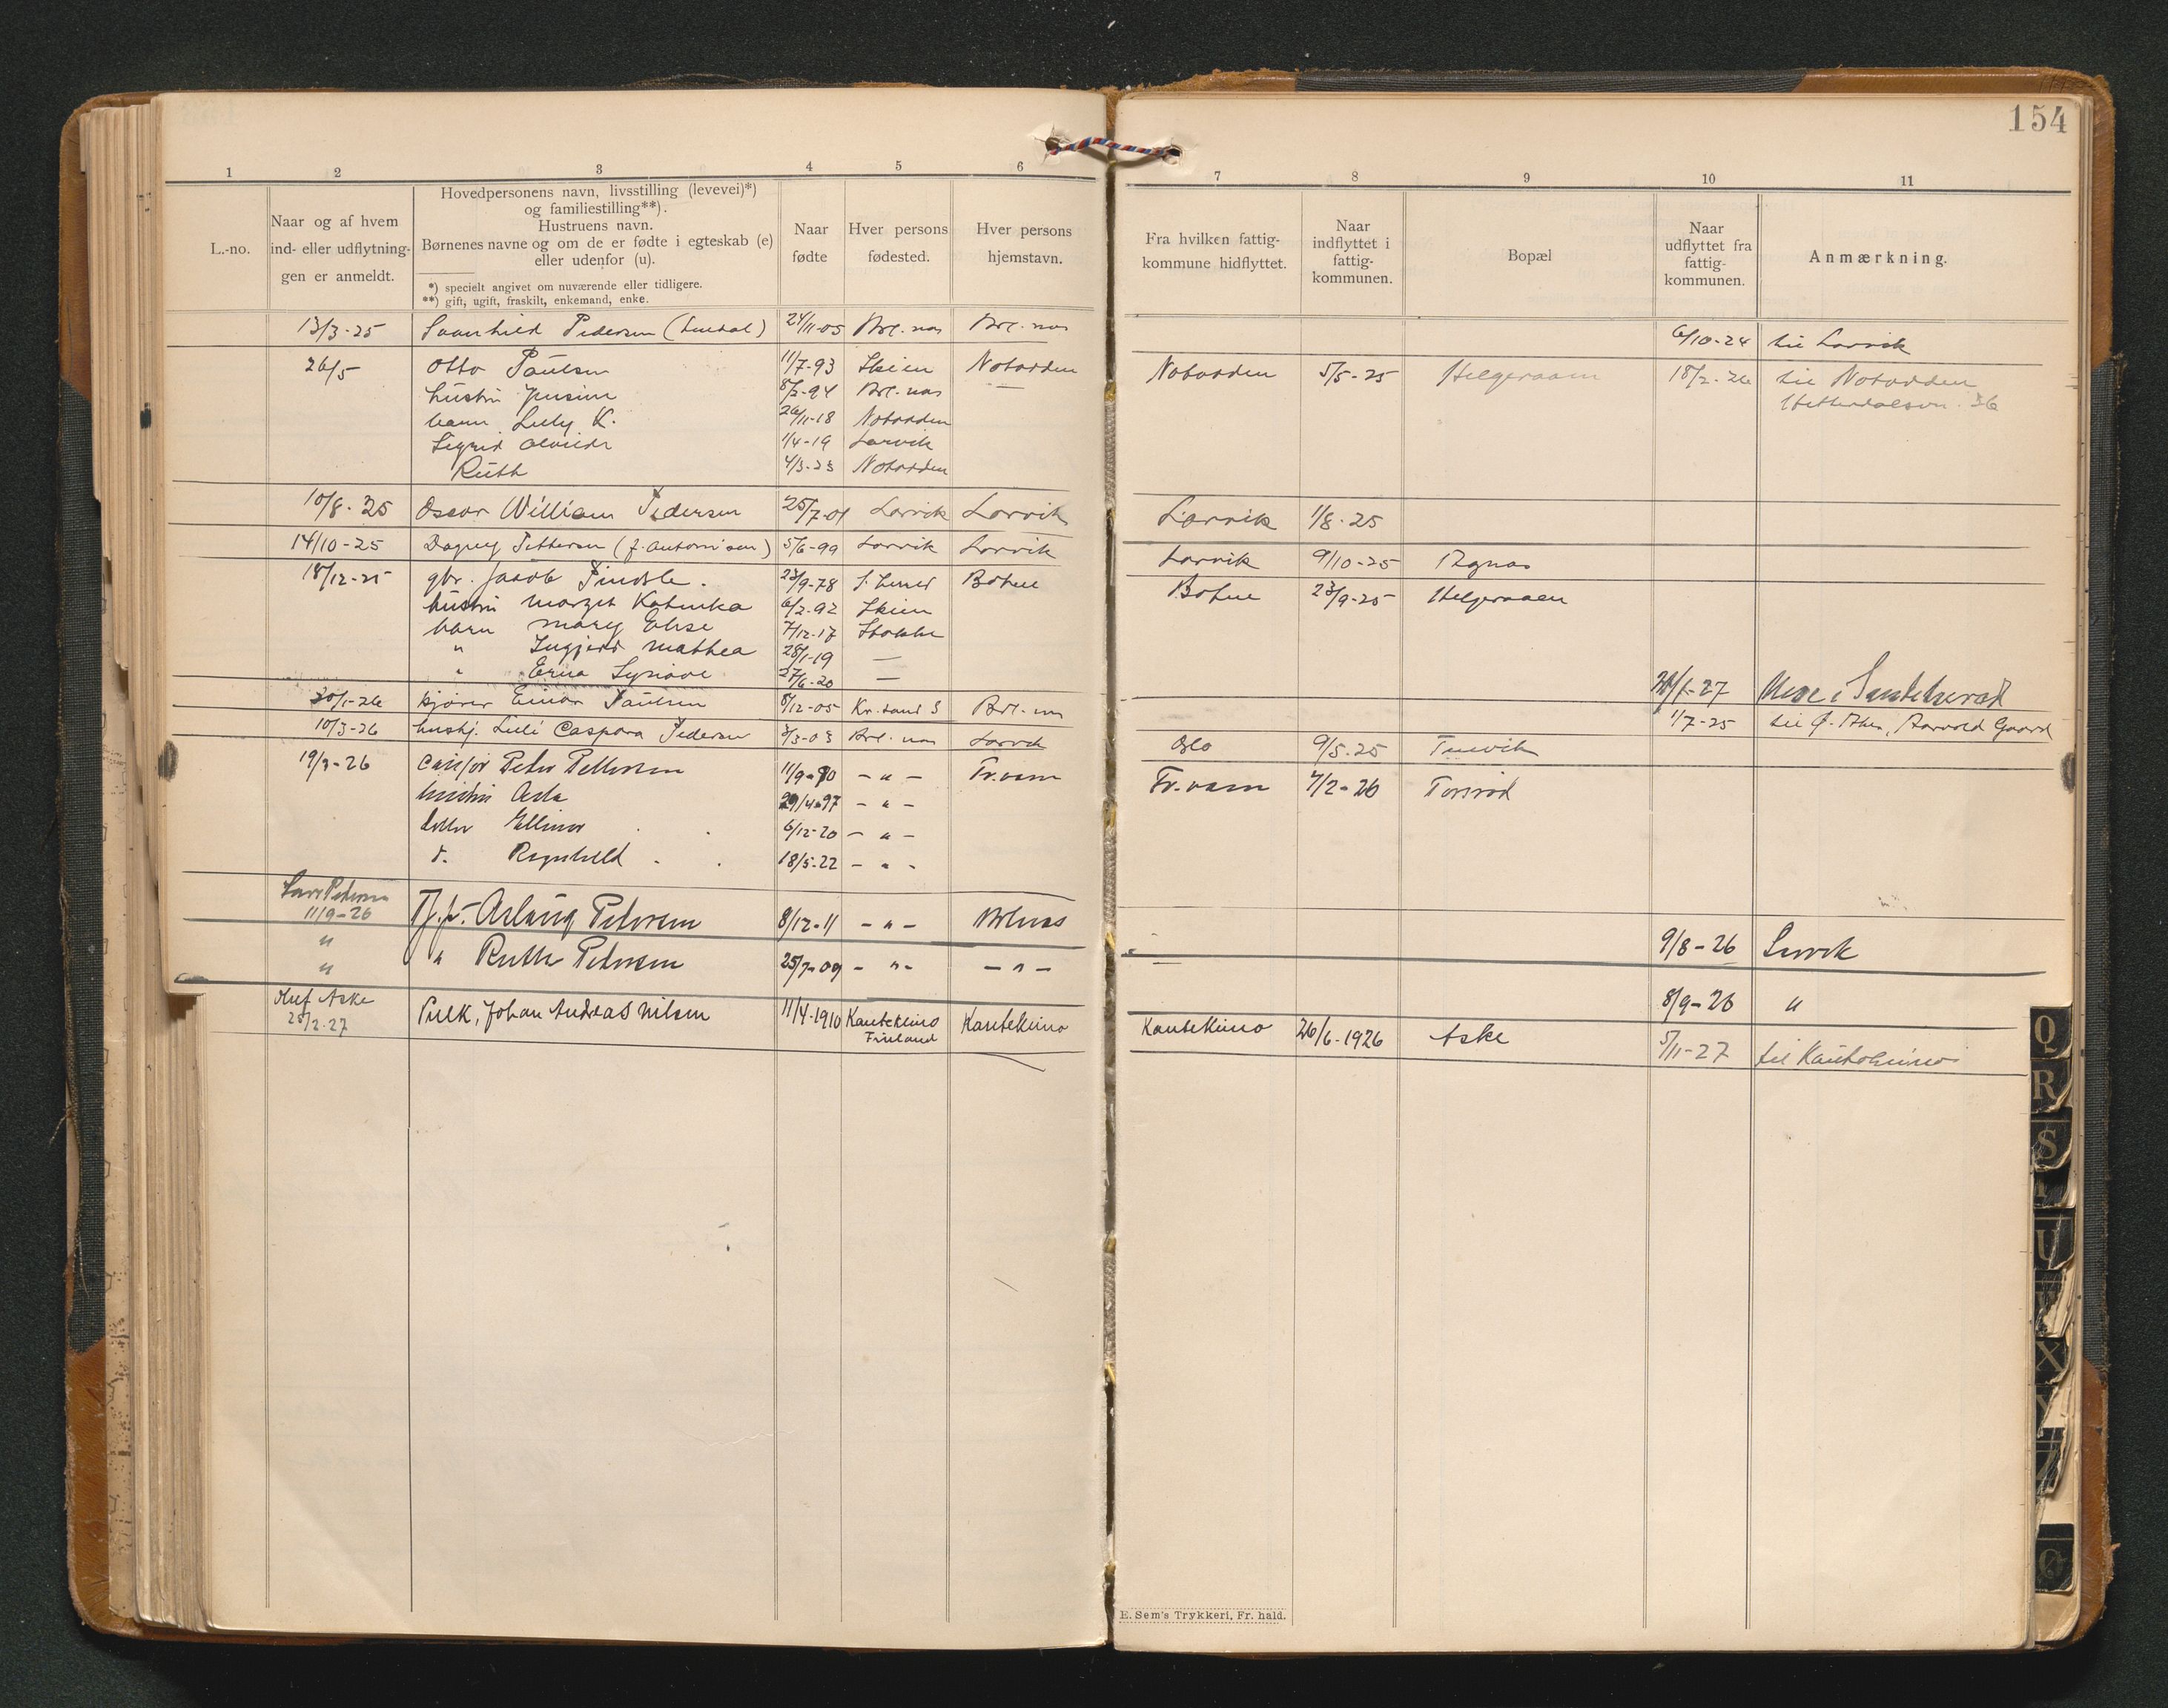 154
1 2 3 4 5 6 7 8 9 10 11
L.-no.
Naar og af hvem
ind- eller udflytnin-
gen er anmeldt.
Hovedpersonens navn, livsstilling (levevei)*)
og familiestilling**).
Hustruens navn.
Børnenes navne og om de er fødte i egteskab (e)
eller udenfor (u).
*) specielt angivet om nuværende eller tidligere.
**) gift, ugift, fraskilt, enkemand, enke.
Naar
fødte
Hver persons
fødested.
Hver persons
hjemstavn.
Fra hvilken fattig-
kommune hidflyttet.
Naar
indflyttet i
fattig-
kommunen.
Bopæl
Naar
udflyttet fra
fattig-
kommunen.
Anmærkning.
13/3-25 Svanhild Pedersen 24/11-05 Brl. nes Brl. nes 6/10-24 til Larvik
26/5 Otto Paulsen 11/7-93 Skien Notodden Notodden 5/5-25 Helgeraaen 18/2-26 til Notodden
hustru 8/2-94 Brl. nes — 36
barn Lilly K. 26/11-18 Notodden
Sigrid 1/4-19 Larvik
Ruth 4/3-23 Notodden
10/8-25 Oscar William Pedersen 25/7-01 Larvik Larvik Larvik 1/8-25
14/10-25 Dagny Pettersen (f. Antonisen) 5/6-99 Larvik Larvik Larvik 9/10-25
18/12-25 gbr. Jacob Pindsle. 23/9-78 Botne Botne 23/9-25 Helgeraaen
hustru Margit Katinka 6/2-92 Skien
barn Mary Elise 7/12-17 Stokke
" Ingjerd Mathea 28/1-19 —
" Erna Synnøve 27/6-20 — 20/1-27 i
20/1-26 Einar Paulsen 8/12-05 Kr.sand S Brl. nes 1/7-25 til Gaard
10/3-26 hushj. Lilli Caspara Pedersen 3/3-03 Brl. nes Larvik Oslo 9/5-25
19/3-26 Peder Pettersen 11/9-90 - " - Fr.værn Fr.værn 7/2-26
hustru Asta 29/4-97 - " -
datter Ellinor 6/12-20 - " -
d. Ragnhild 18/5-22 - " -
Lars Pedersen
11/9-26 Tj.p. Aslaug Petersen 8/12-11 - " - Brlnes 9/8-26 Larvik
" " Ruth Petersen 25/7-09 - " - - " - 8/9-26 "
"
Oluf Aske
25/2-27 Pulk, Johan Andreas Nilsen 11/4-1910 Kautekeino Kautekeino Kautekeino 26/6-1926 Aske 5/11-27 til Kautokeino
Finland
E. Sem's Trykkeri, Fr. hald.
Q
R
S
U
X
Y
Z